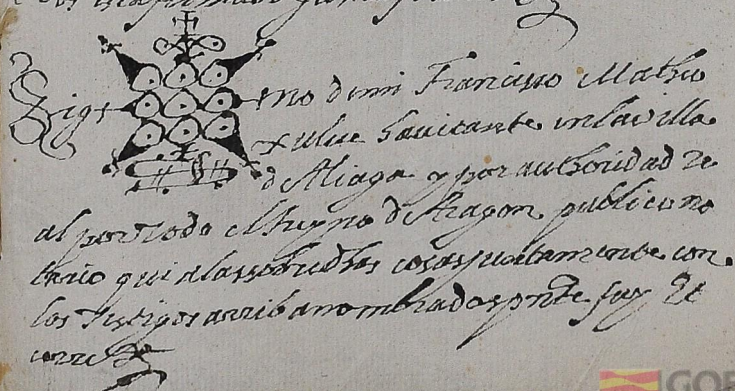 Sig no de mi Francisco Mathio
xulue hauitante en la villa
de Aliaga y por authoridad re
al por todo el Reyno de Aragon publico no
tario qui a las sobredhas cosas juntamente con
los testigos arriba nombrados pnte fuy et
cerre